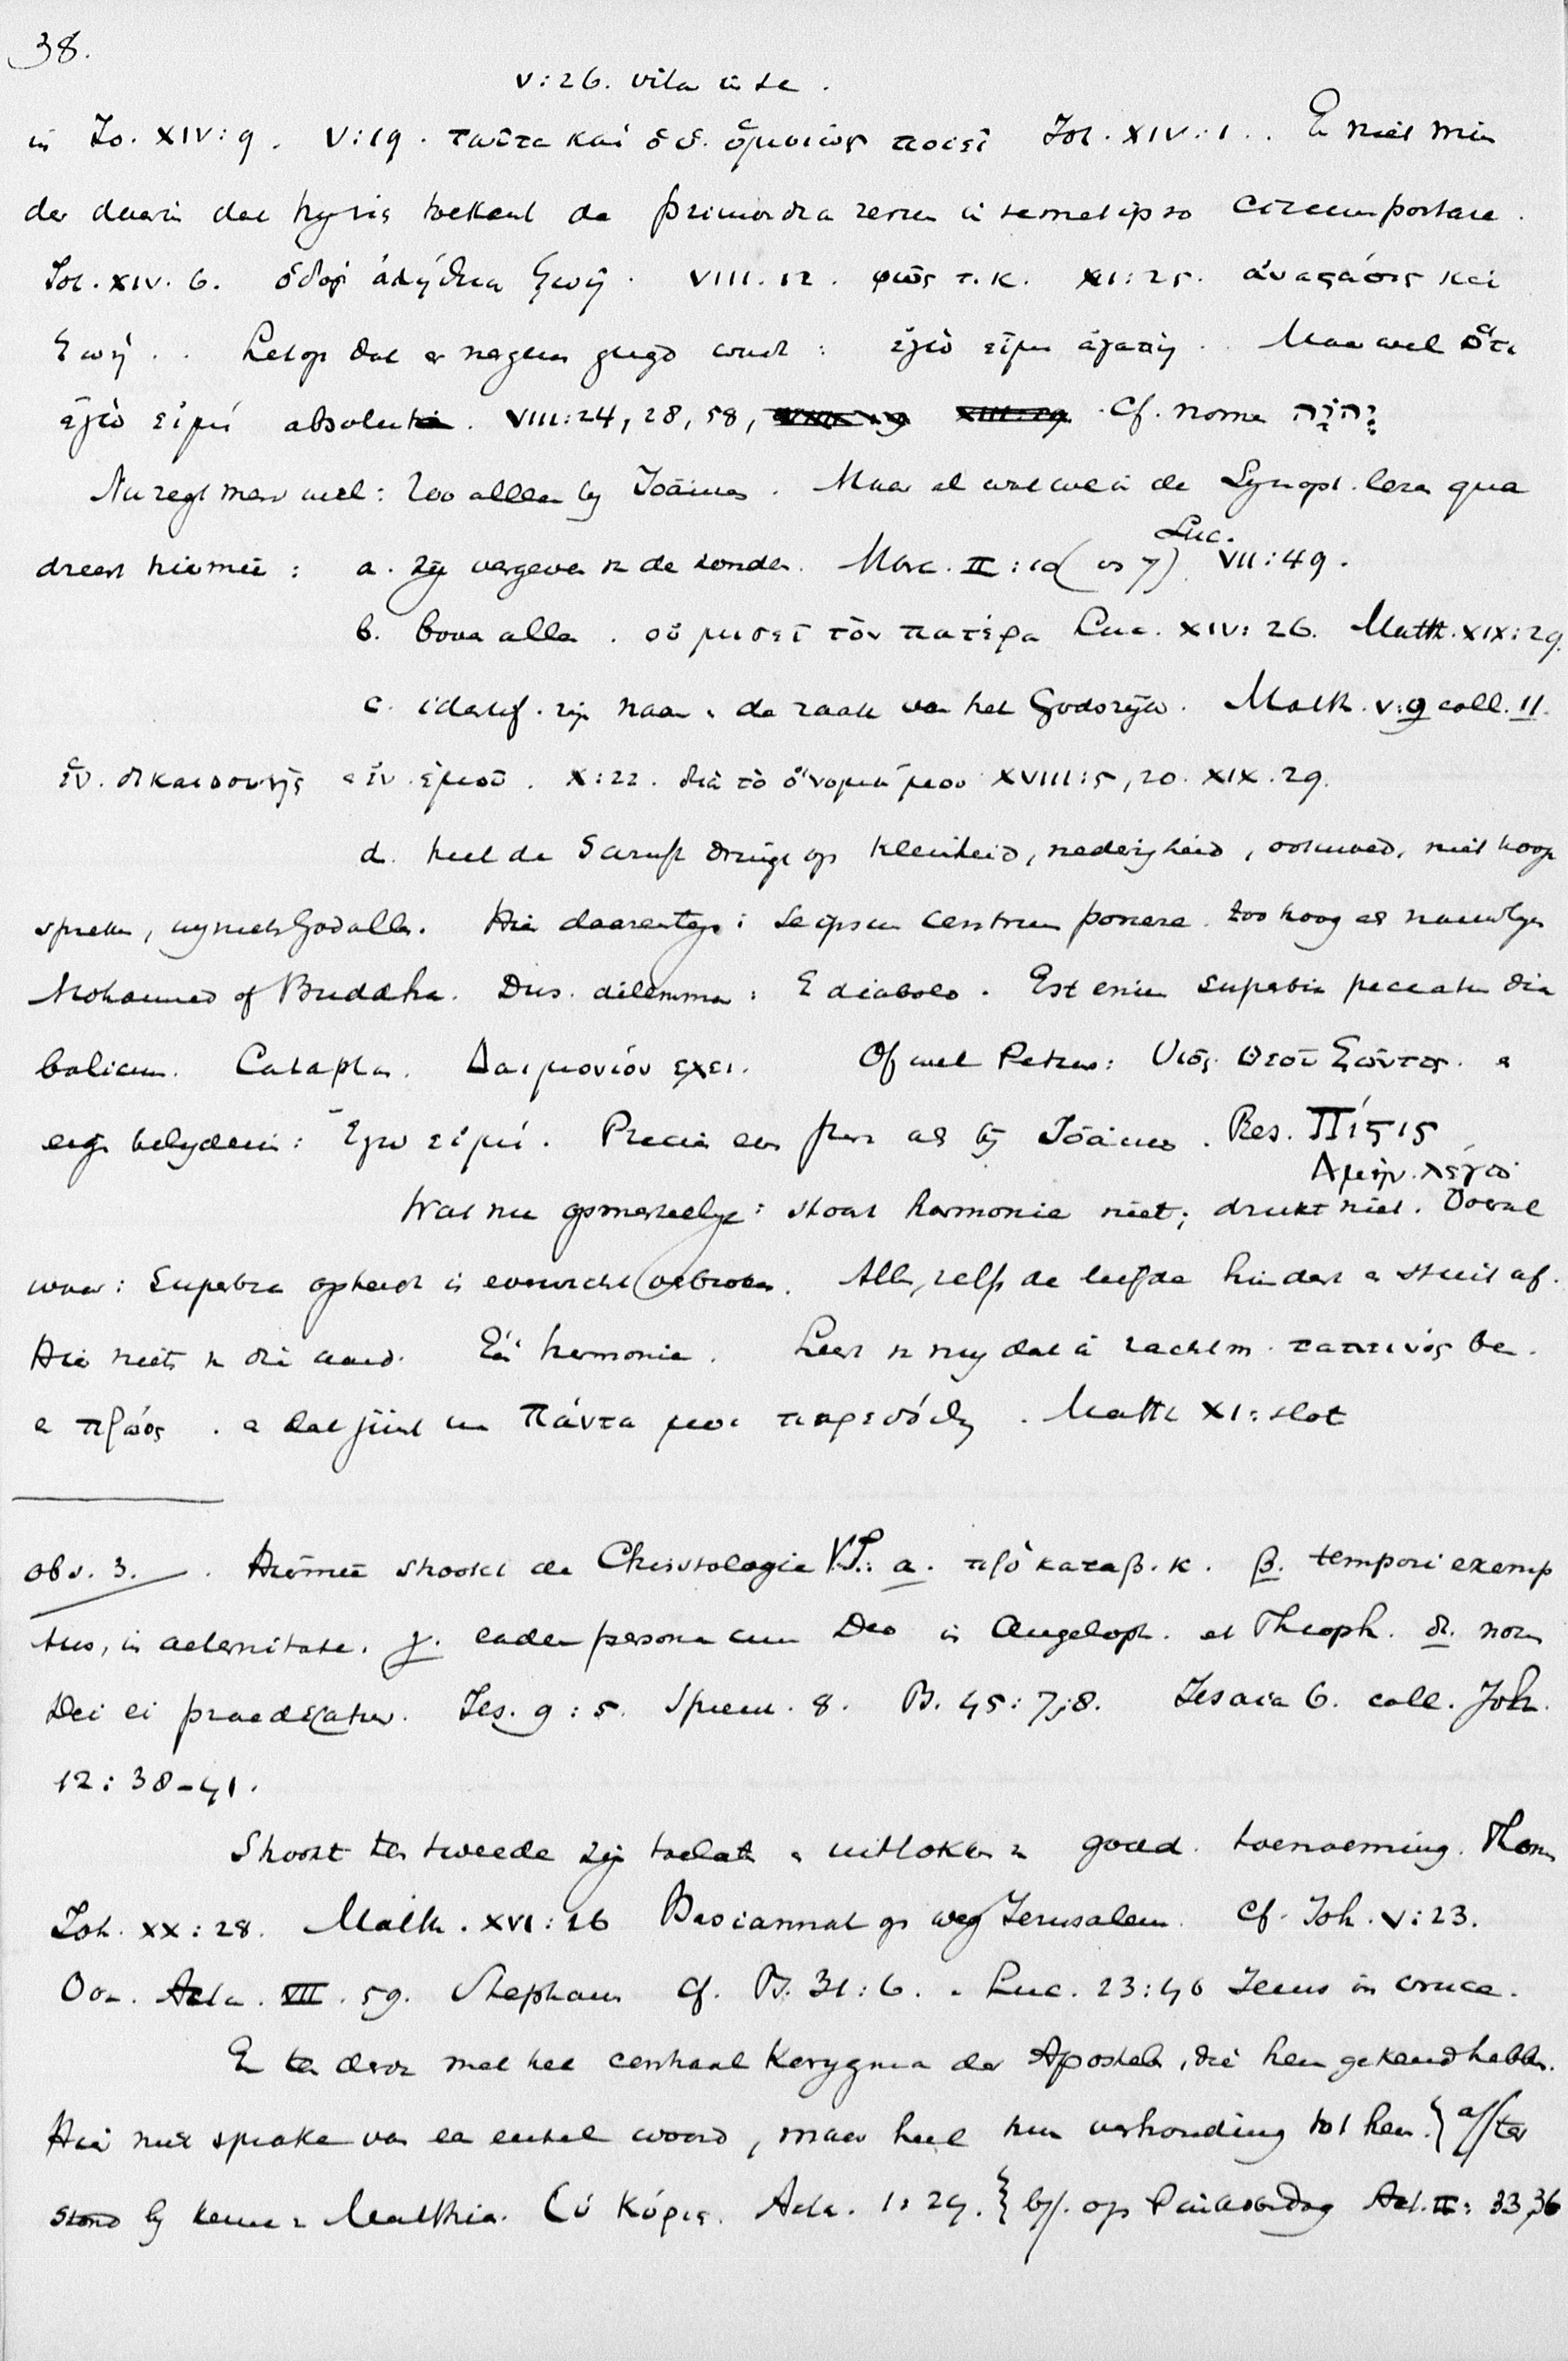 38.
V:26. vita in se.
in Jo. XIV:9. V:19. ταῦτα καί ὁ υ. ὁμοίως ποιεῖ Joh. XIV:1.. En niet min
der daarin dat hy sig toekent de primordia rerum in semetipso circumportare.
Joh. XIV.6. ὁδος ἀλήθεια ζωή. VIII.12. φῶς τ.κ. XI:25. ἀναςάσις καί
ζωή.. Let op dat er nergens gezegd wordt: ἐγώ εἰμι ἀγαπή.. Maar wel ὅτι
ἐγώ εἰμί absolute. VIII:24, 28, 58, Cf. nomen יהוה
Nu zegt men wel: Zoo alleen by Joännes. Maar al wat we in de Synopt. lezen qua
dreert hiermeê: a. Zij vergeven v. de zonden. Marc. II:10 (vs 7) Luc. VII:49.
b. boven allen. οὐ μισεῖ τὸν πατέρα Luc. XIV:26. Matth. XIX:29.
c. identif. zijn naam en de zaak van het Godsrijk. Matth. V:9 coll. 11.
ἕν. δικαιοσυνῆς en ἕν. ἐμοῦ. X:22. διὰ τὸ ὄνομά μου XVIII:5, 20. XIX.29.
d. heel de Schrift dringt op kleinheid, nederigheid, ootmoed, niet hoog
spreken, wij niets God alles. Hier daarentegen: Se ipsum centrum ponere. zoo hoog als nauwlyx
Mohammed of Buddha. Dus dilemma: E diabolo. Est enim superbia peccatum dia
bolicum. Cataphn. Δαιμονιόν εχει. Of wel Petrus: Υιός Θεοῦ ζῶντος. en
eign belydenis: Ἐγω εἰμί. Precies een fkn als bij Jöännes. Res. Πίςις
Αμήν. λέγω
Wat nu opmerkelyk: stoort harmonie niet; drukt niet. Overal
waar: Superbia opheldt is evenwicht verbroken. Alles, zelfs de liefde hindert en stuit af.
Hier niets v. die aard. Eén harmonie. Leert v. mij dat ik zachtm. ταπεινός ben.
en πρᾶος. en dat juist in Πάντα μοι παρεδόθη. Matth XI:slot
obs. 3. Hiermeê strookt de Christologie V.T.: a. πρὸ καταβ.κ. β. tempori exemp
tus, in aeternitate. γ. eadem persona cum Deo in Angeloph. et Theoph. δ. nomen
Dei ei praedicatur. Jes. 9:5. Spreuk. 8. Ps. 45:7,8. Jesaia 6. coll. Joh.
12:38-41.
Strookt ten tweede zijn toelaten en uitlokken v. godd. toenoeming. Thom
Joh. XX:28. Matth. XVI:16 Hosiannah op weg Jerusalem. Cf. Joh. V:23.
Oox. Acta. VII.59. Stephanus cf. Ps. 31:6. en Luc. 23:46 Jezus in cruce.
En ten derde met het centraal Kerygma der Apostelen, die hem gekend hebben.
Hier niet sprake van een enkel woord, maar heel hun verhouding tot hem. a// ter
stond by keuze v. Matthia. Σύ Κύριε. Acta. 1:24. b//. op Pinksterdag Act. II:33,36